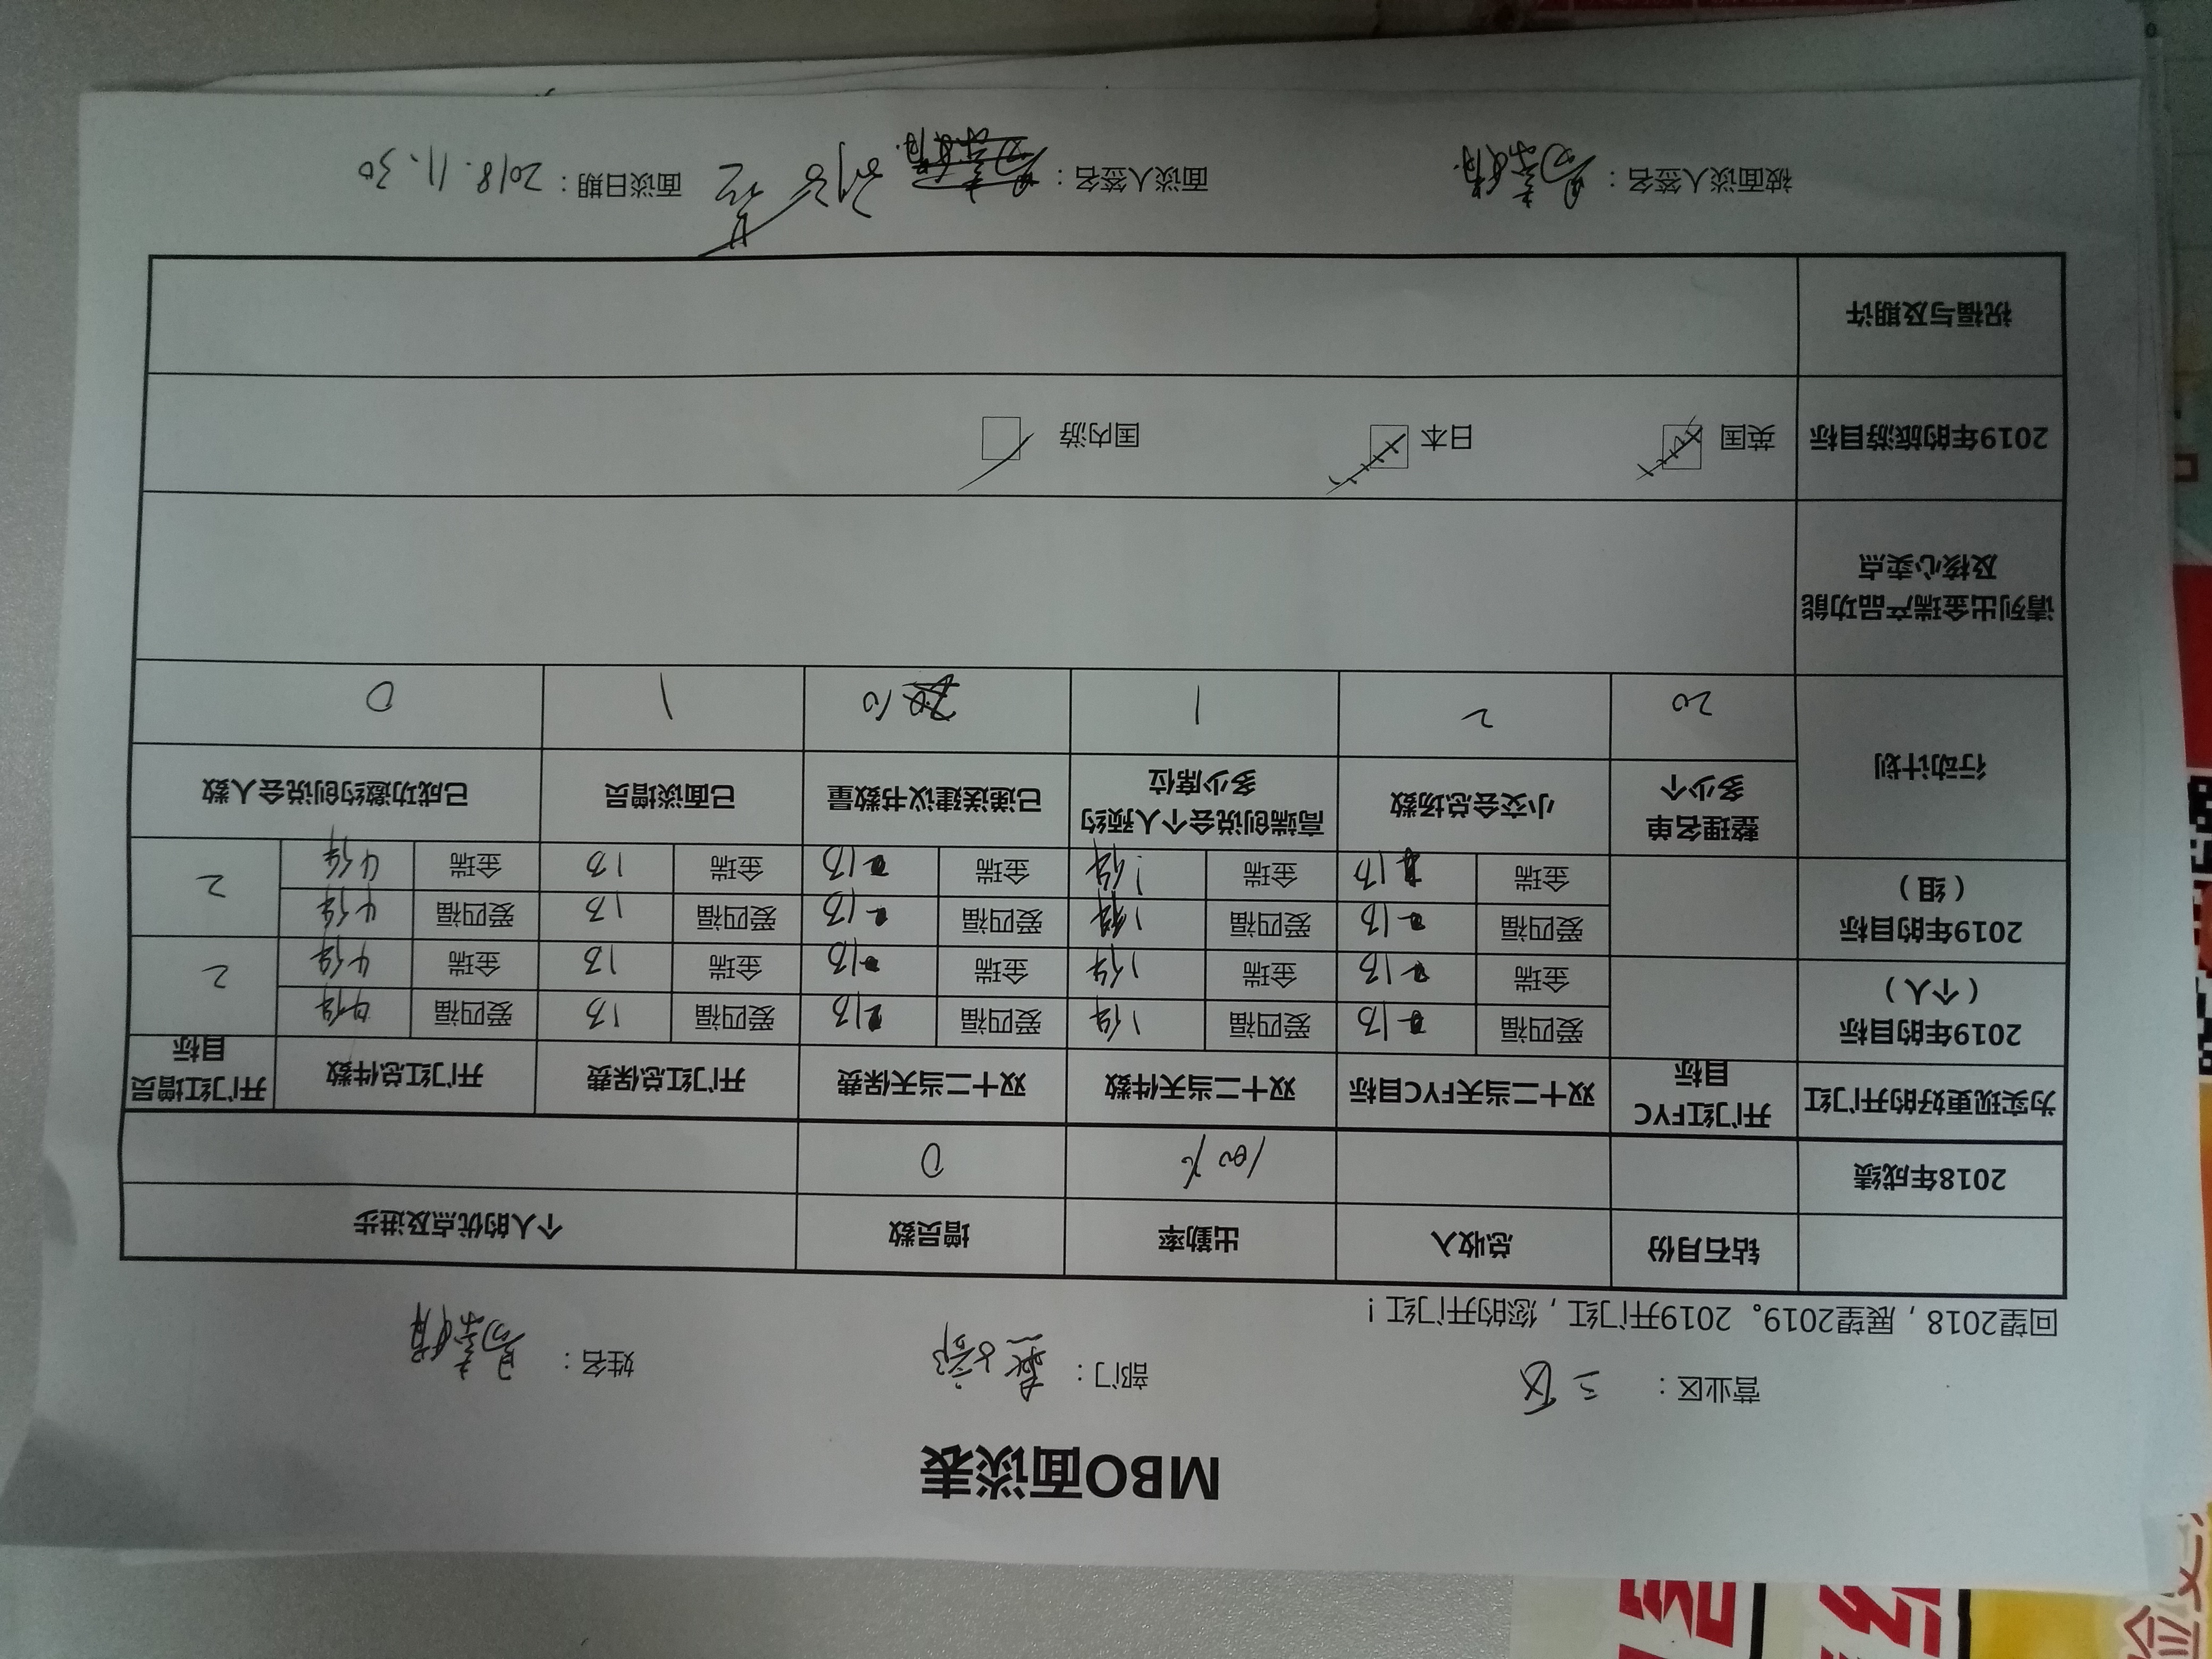 MBO面谈表
营业区： 三区 部门： 燕七部 姓名：
回望2018，展望2019。2019开门红，您的开门红！
钻石月份 总收入 出勤率 增员数 个人的优点及进步
2018年成绩 100% 0
为实现更好的开门红 开门红FYC目标 双十二当天FYC目标 双十二当天件数 双十二当天保费 开门红总保费 开门红总件数 开门红增员目标
2019年的目标（个人） 爱四福 1万 爱四福 1件 爱四福 1万 爱四福 1万 爱四福 4件 2
金瑞 1万 金瑞 1件 金瑞 1万 金瑞 1万 金瑞 4件
2019年的目标（组） 爱四福 1万 爱四福 1件 爱四福 1万 爱四福 1万 爱四福 4件 2
金瑞 1万 金瑞 1件 金瑞 1万 金瑞 1万 金瑞 4件
行动计划 整理名单多少个 小交会总场数 高端创说会个人预约多少席位 已递送建议书数量 已面谈增员 已成功邀约创说会人数
20 2 1 10 1 0
请列出金瑞产品功能及核心卖点
2019年的旅游目标 英国 日本 国内游
祝福与及期许
被面谈人签名： 面谈人签名： 面谈日期：2018.11.30